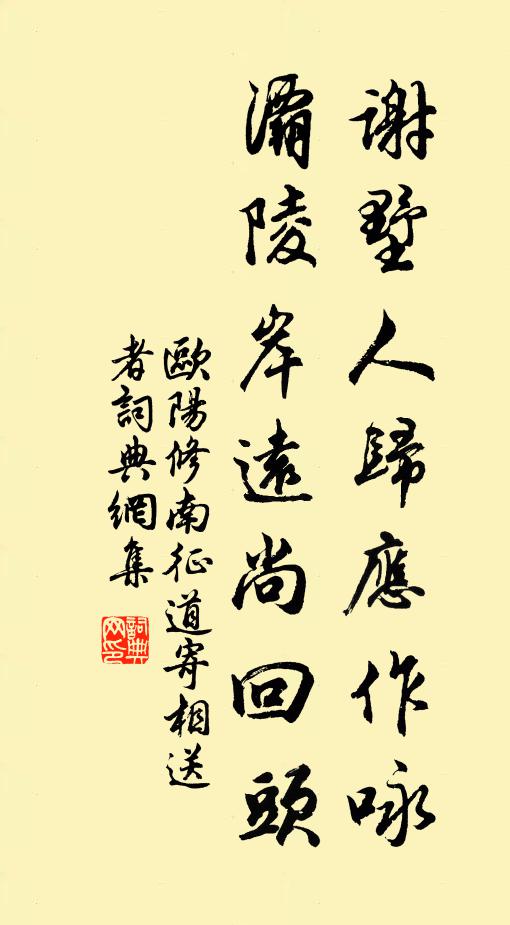 謝墅人歸應作咏
灞陵岸遠尚回頭
歐陽修南征道寄相送
者詞典網集
詞典
网印